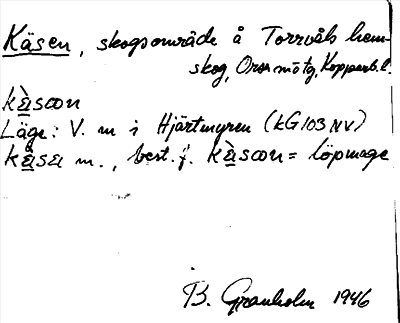 Käsen, skogsområde å Torrvåls hem-
skog, Orsa mötg, Kopparb.l.
kæ̀scon
Läge: V. m i Hjärtmyren (kG103NV)
kæ̀sa m., best. f. kæ̀scon = löpmage
B. Granholm 1946